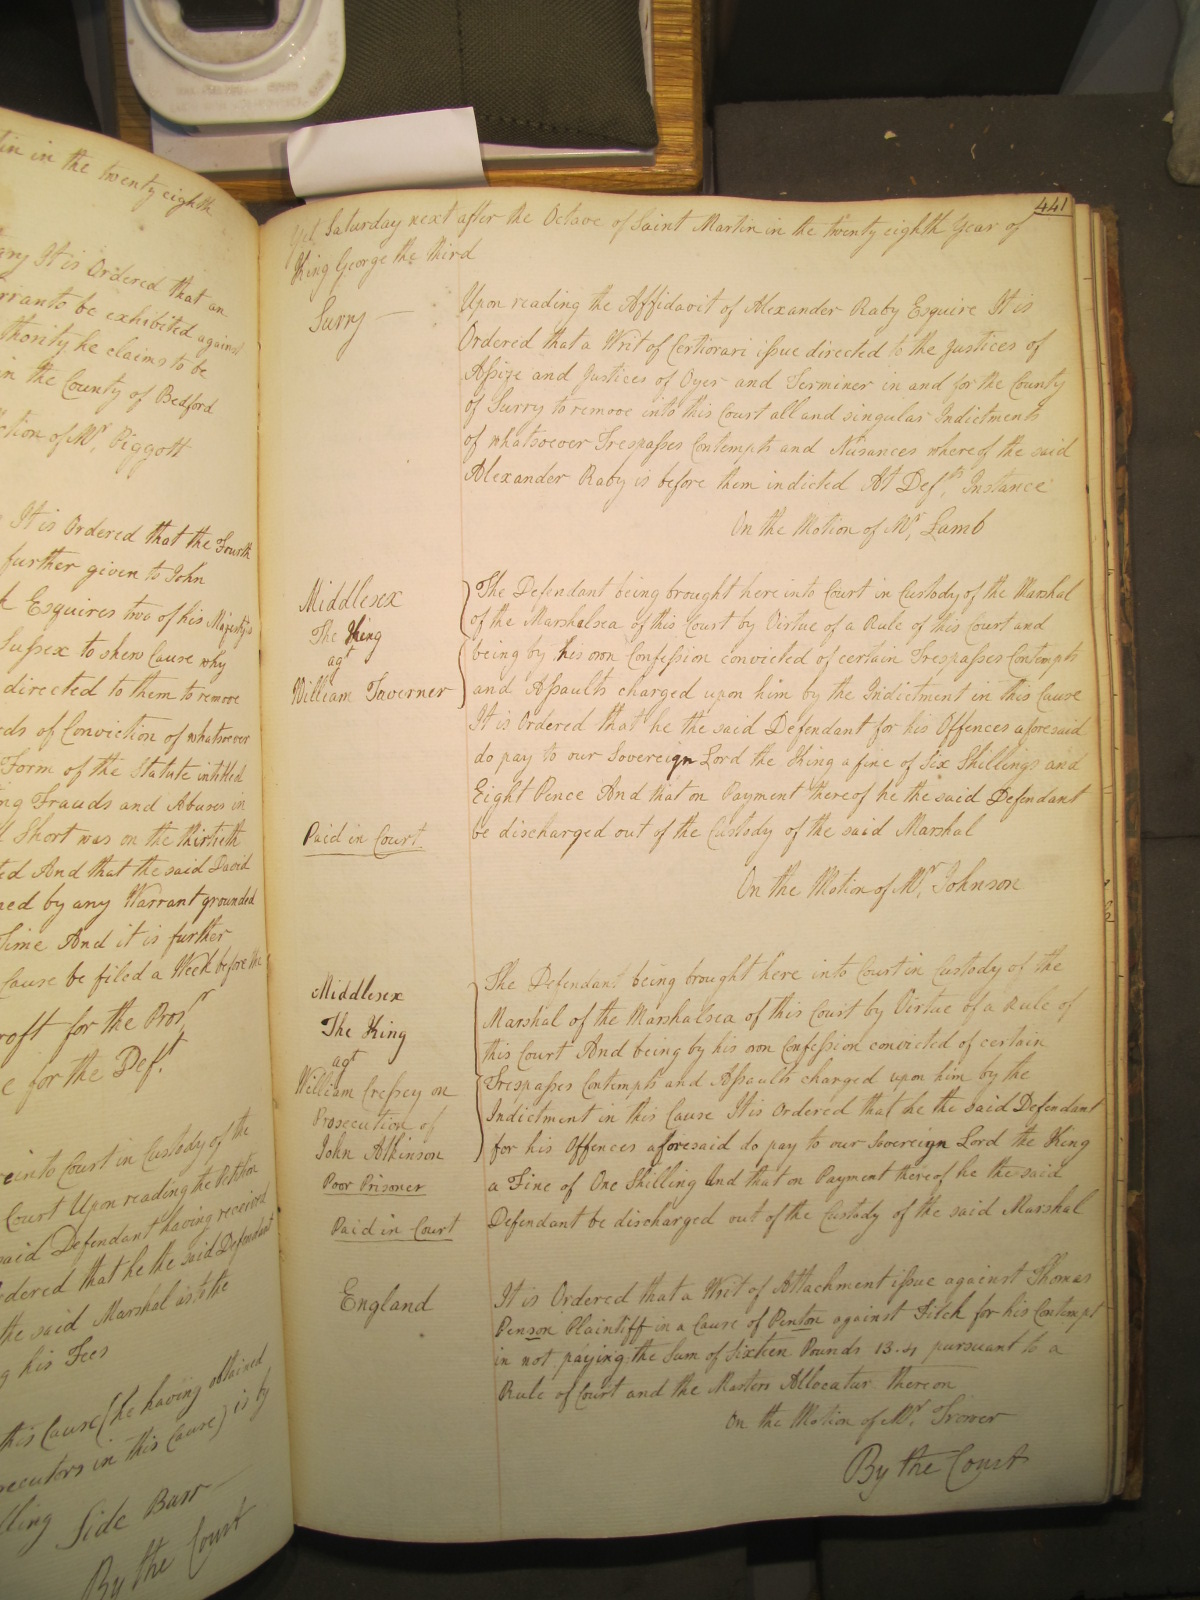 lin in the twenty eighth
ary It is Ordered that an
rranto be exhibited against
thority he claims to be
in the County of Bedford
ction of Mr. Piggott
It is Ordered that the Fourth
further given to John
k Esquires two of his Majesty's
Sussex to shew Cause why
directed to them to remove
ds of Conviction of whatsoever
Form of the Statute intitled
ng Frauds and Abuses in
d Short was on the thirtieth
ted And that the said David
ned by any Warrant grounded
Time And it is further
Cause be filed a Week before the
roft for the Pros.r
e for the Def.t
re into Court in Custody of the
Court Upon reading the Petition
said Defendant having received
rdered that he the said Defendant
the said Marshal as to the
g his Fees
this Cause (he having obtained
secutors in this Cause) is by
lling Side Barr
By the Court
441
Saturday next after the Octave of Saint Martin in the twenty eighth Year of
King George the third
Surry
Upon reading the Affidavit of Alexander Raby Esquire It is
Ordered that a Writ of Certiorari issue directed to the Justices of
Assize and Justices of Oyer and Terminer in and for the County
of Surry to remove into this Court all and singular Indictments
of whatsoever Trespasses Contempts and Nusances whereof the said
Alexander Raby is before them indicted At Def.ts Instance
On the Motion of Mr. Lamb
Middlesex
The King
agt
William Taverner
The Defendant being brought here into Court in Custody of the Marshal
of the Marshalsea of this Court by Virtue of a Rule of this Court and
being by his own Confession convicted of certain Trespasses Contempts
and Assaults charged upon him by the Indictment in this Cause
It is Ordered that he the said Defendant for his Offences aforesaid
do pay to our Sovereign Lord the King a fine of Six Shillings and
Eight Pence And that on Payment thereof he the said Defendant
be discharged out of the Custody of the said Marshal
Paid in Court.
On the Motion of Mr. Johnson
Middlesex
The King
agt
William Cressey on
Prosecution of
John Atkinson
Poor Prisoner
Paid in Court
The Defendant being brought here into Court in Custody of the
Marshal of the Marshalsea of this Court by Virtue of a Rule of
this Court And being by his own Confession convicted of certain
Trespasses Contempts and Assaults charged upon him by the
Indictment in this Cause It is Ordered that he the said Defendant
for his Offences aforesaid do pay to our Sovereign Lord the King
a Fine of One Shilling And that on Payment thereof he the said
Defendant be discharged out of the Custody of the said Marshal
England
It is Ordered that a Writ of Attachment issue against Thomas
Penson Plaintiff in a Cause of Penton against Fitch for his Contempt
in not paying the Sum of Sixteen Pounds 13.4 pursuant to a
Rule of Court and the Masters Allocatur thereon
On the Motion of Mr. Trower
By the Court